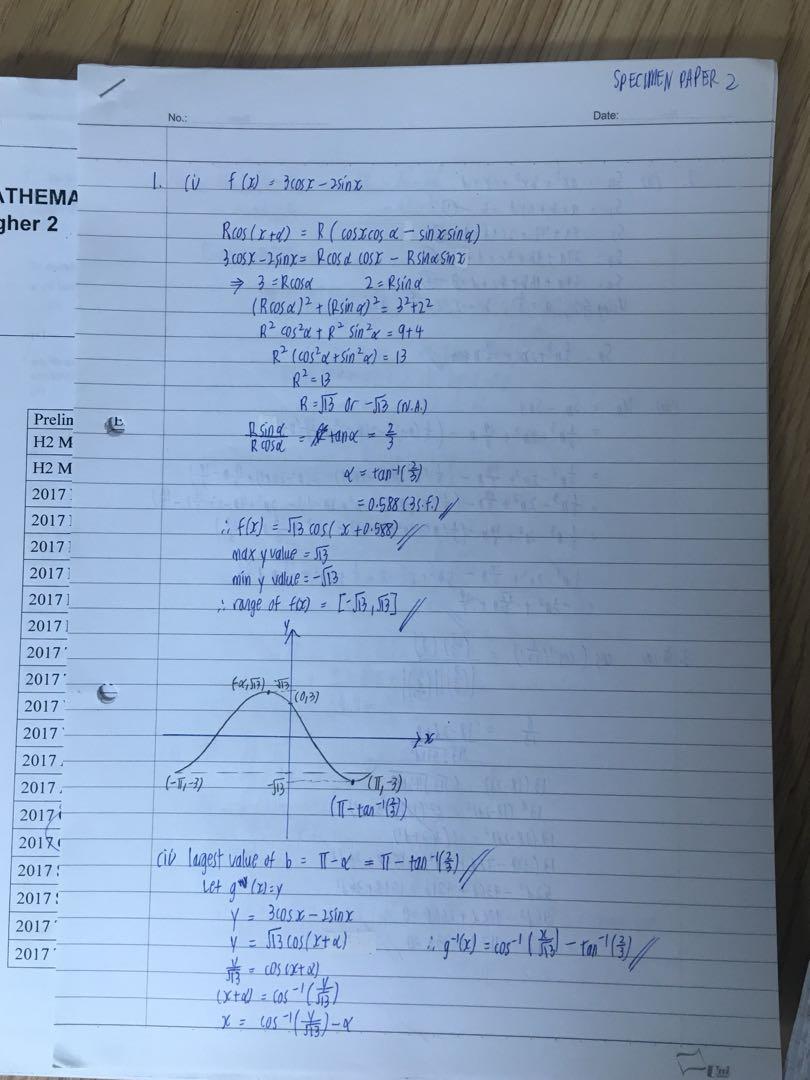 SPECIMEN PAPER 2
No.:
Date:
ATHEMA
gher 2
Prelim
H2 M
H2 M
2017
2017
2017
2017
2017
2017
2017
2017
2017
2017
2017
2017
2017
2017
2017
2017
2017
2017
1. (i) f(x) = 3cosx - 2sinx
Rcos(x+α) = R(cosxcosα - sinxsinα)
3cosx - 2sinx = Rcosα cosx - Rsinαsinx
⇒ 3 = Rcosα 2 = Rsinα
(Rcosα)² + (Rsinα)² = 3²+2²
R² cos²α + R² sin²α = 9+4
R² (cos²α+sin²α) = 13
R² = 13
R = √13 or -√13 (N.A.)
Rsinα/Rcosα = tanα = 2/3
α = tan⁻¹(2/3)
= 0.588 (3s.f.)
∴ f(x) = √13 cos(x+0.588)
max y value = √13
min y value = -√13
∴ range of f(x) = [-√13, √13]
y
(-α,√13) √13
(0,3)
x
(-π,-3) -√13 (π,-3)
(π-tan⁻¹(2/3))
(ii) largest value of b = π-α = π - tan⁻¹(2/3)
Let g(x)=y
y = 3cosx - 2sinx
y = √13 cos(x+α) ∴ g⁻¹(x) = cos⁻¹(x/√13) - tan⁻¹(2/3)
y/√13 = cos(x+α)
(x+α) = cos⁻¹(y/√13)
x = cos⁻¹(y/√13) - α